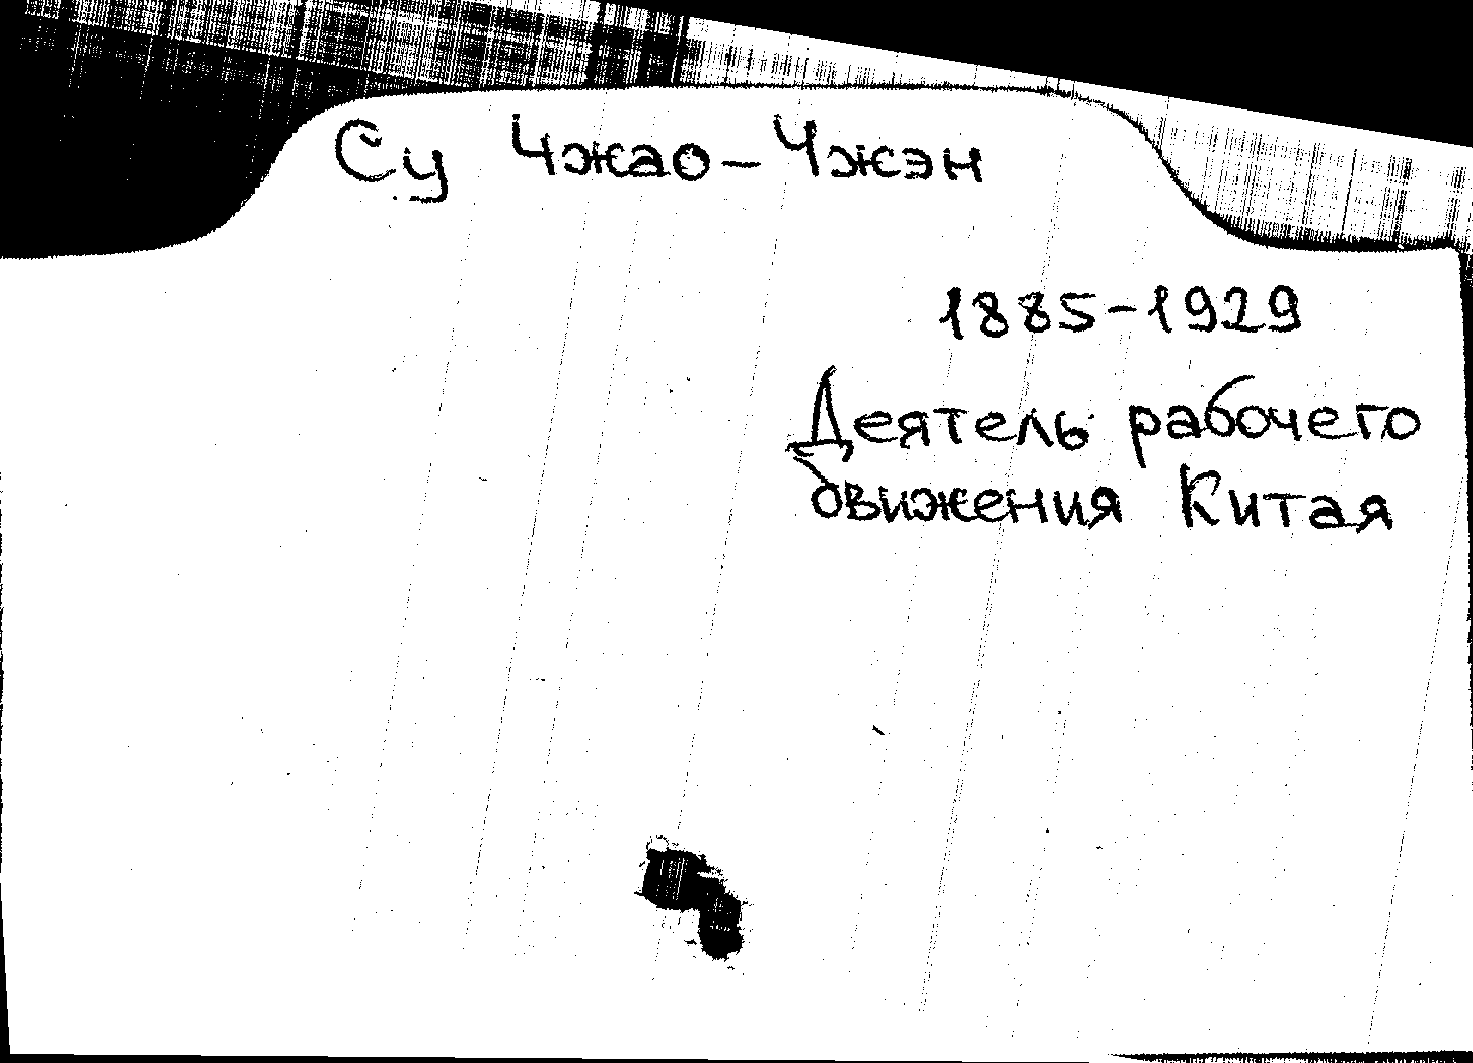 Су Чжао-Чжэн
1885-1929
Деятель рабочего
движения Китая